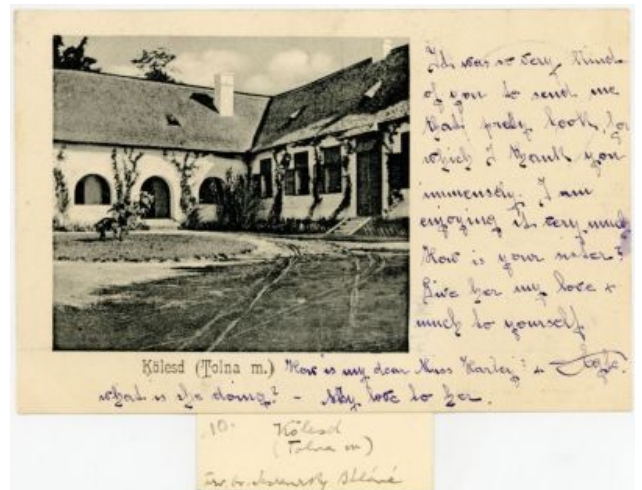 It was so very kind
of you to send me
that prety book, for
which I thank you
immensely. I am
enjoying it very much
How is your sister?
Give her my love &
much to yourself
Kölesd (Tolna m.)
How is my dear Miss Harley? &
what is she doing? - My love to her.
10.
Kölesd
(Tolna m)